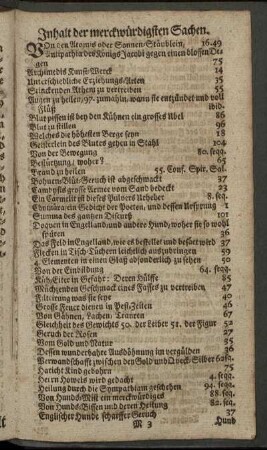 Inhalt der merckwürdigsten Sachen.
Von den Atomis oder Sonnen-Stäublein, 16.49
Antipathia des Königs Jacobi gegen einen blossen De-
gen 75
Archimedis Kunst-Werck 14
Unterschiedliche Erziehungs-Arten 35
Stinckenden Athem zu vertreiben 55
Augen zu heilen, 97. zumahln, wann sie entzündet und voll
Flüß ibid.
Blut pissen ist bey den Kühnen ein grosses Ubel 86
Blut zu stillen 96
Welches die höhesten Berge seyn 18
Geisterlein des Blutes gehen in Stahl 104
Von der Bewegung 80. seqq.
Bestürtzung / woher? 65
Brand zu heilen 55. Conf. Spir. Sal.
Bohnen-Blüt-Geruch ist abgeschmackt 37
Cambysis grosse Armee vom Sand bedeckt 23
Ein Carmelit ist dieses Pulvers Uhrheber 8. seq.
Chimära ein Gedicht der Poeten, und dessen Ursprung 1
Summa des gantzen Discurß 101
Doquen in Engelland, und andre Hunde, woher sie so wohl
spüren 36
Das Feld in Engelland, wie es besselt und besäet wird 37
Flecken in Tisch-Tüchern leichtlich auszubringen 59
4. Elementen in einer Glaß absonderlich zu sehen 50
Von der Einbildung 64. seqq.
Küh-Eiter in Gefahr: Deren Hülffe 85
Müchzenden Geschmack eines Fasses zu vertreiben 47
Filtrirung was sie seye 40
Grosse Feuer dienen in Pest-Zeiten 46
Von Gähnen, Lachen, Trauren 67
Gleichheit des Gewichts 50. der Leiber 51. der Figur 52
Geruch der Rosen 37
Vom Gold und Natur 35
Dessen wunderbahre Ausdöhnung im vergülden 36
Verwandschafft zwischen den Gold und Queck-Silber 62. sqq.
Haticht Kind gebohren 75
Herrn Howels wird gedacht 4. seqq.
Heilung durch die Sympathiam geschehen 94. seqq.
Von Hunds-Mist ein merckwürdiges 88. seq.
Von Hunds-Bissen und deren Heilung 82. seqq.
Englischer Hunde scharffer Geruch 37
M 3 Hund